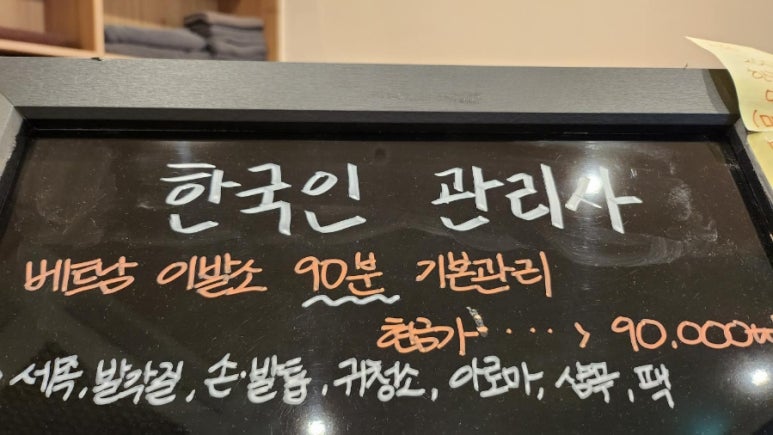 한국인 관리사
베트남 이발소 90분 기본관리
현금가 ····> 90.000₩
세족, 발각질, 손·발톱, 귀청소, 아로마, 샴푸, 팩